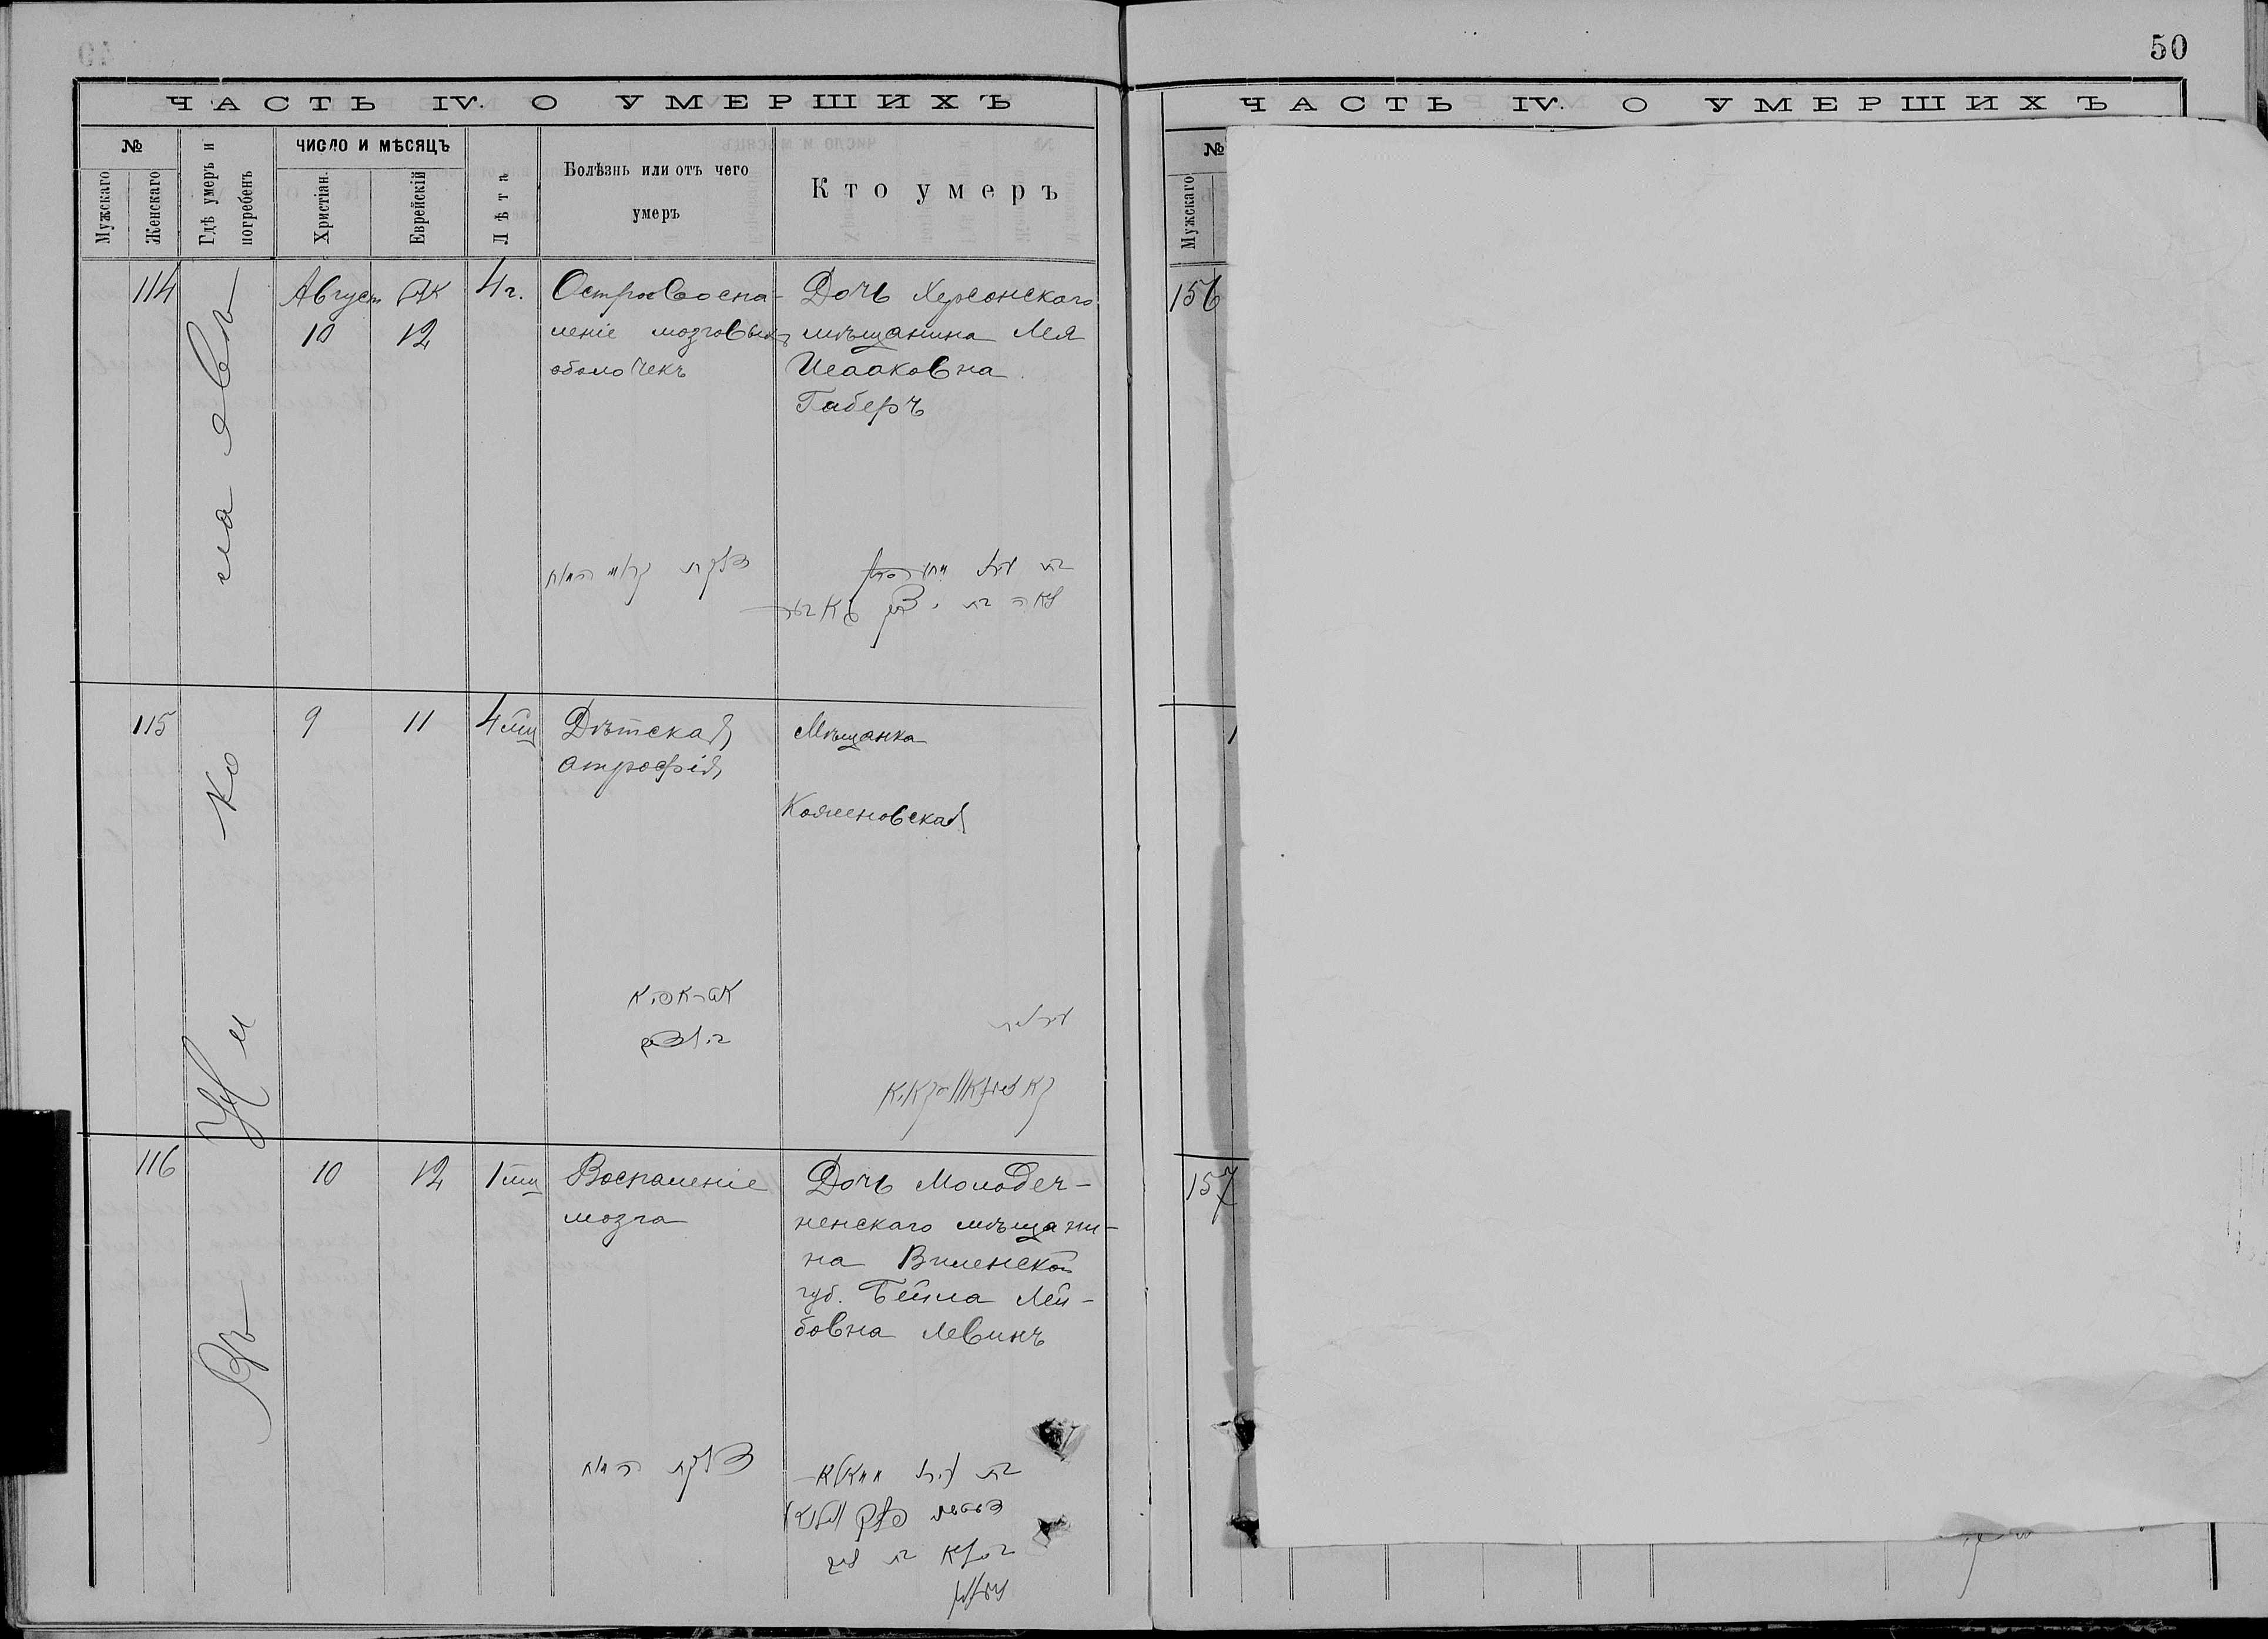 50
ЧАСТЬ IV. О УМЕРШИХЪ
№
Мужскаго
Женскаго
Гдѣ умеръ и погребенъ
ЧИСЛО И МѢСЯЦЪ
Христіан.
Еврейскій
Лѣта
Болѣзнь или отъ чего
умеръ
Кто умеръ
114
Август
10
אב
12
4 г.
Острое воспа-
леніе мозговыхъ
оболочекъ
Дочь Херсонскаго
мѣщанина Лея
Исааковна
Габеръ
דלקת קרום המוח
115
9
11
4 мц
Дѣтская
атрофія
Мѣщанка
116
10
12
1 мц
Воспаленіе
мозга
Дочь Молодеч-
ненскаго мѣщани-
на Виленской
губ. Бейла Лей-
бовна Левинъ
דלקת המוח
Въ
Ни
ко
ла
евъ
ЧАСТЬ IV. О УМЕРШИХЪ
№
Мужскаго
156
157